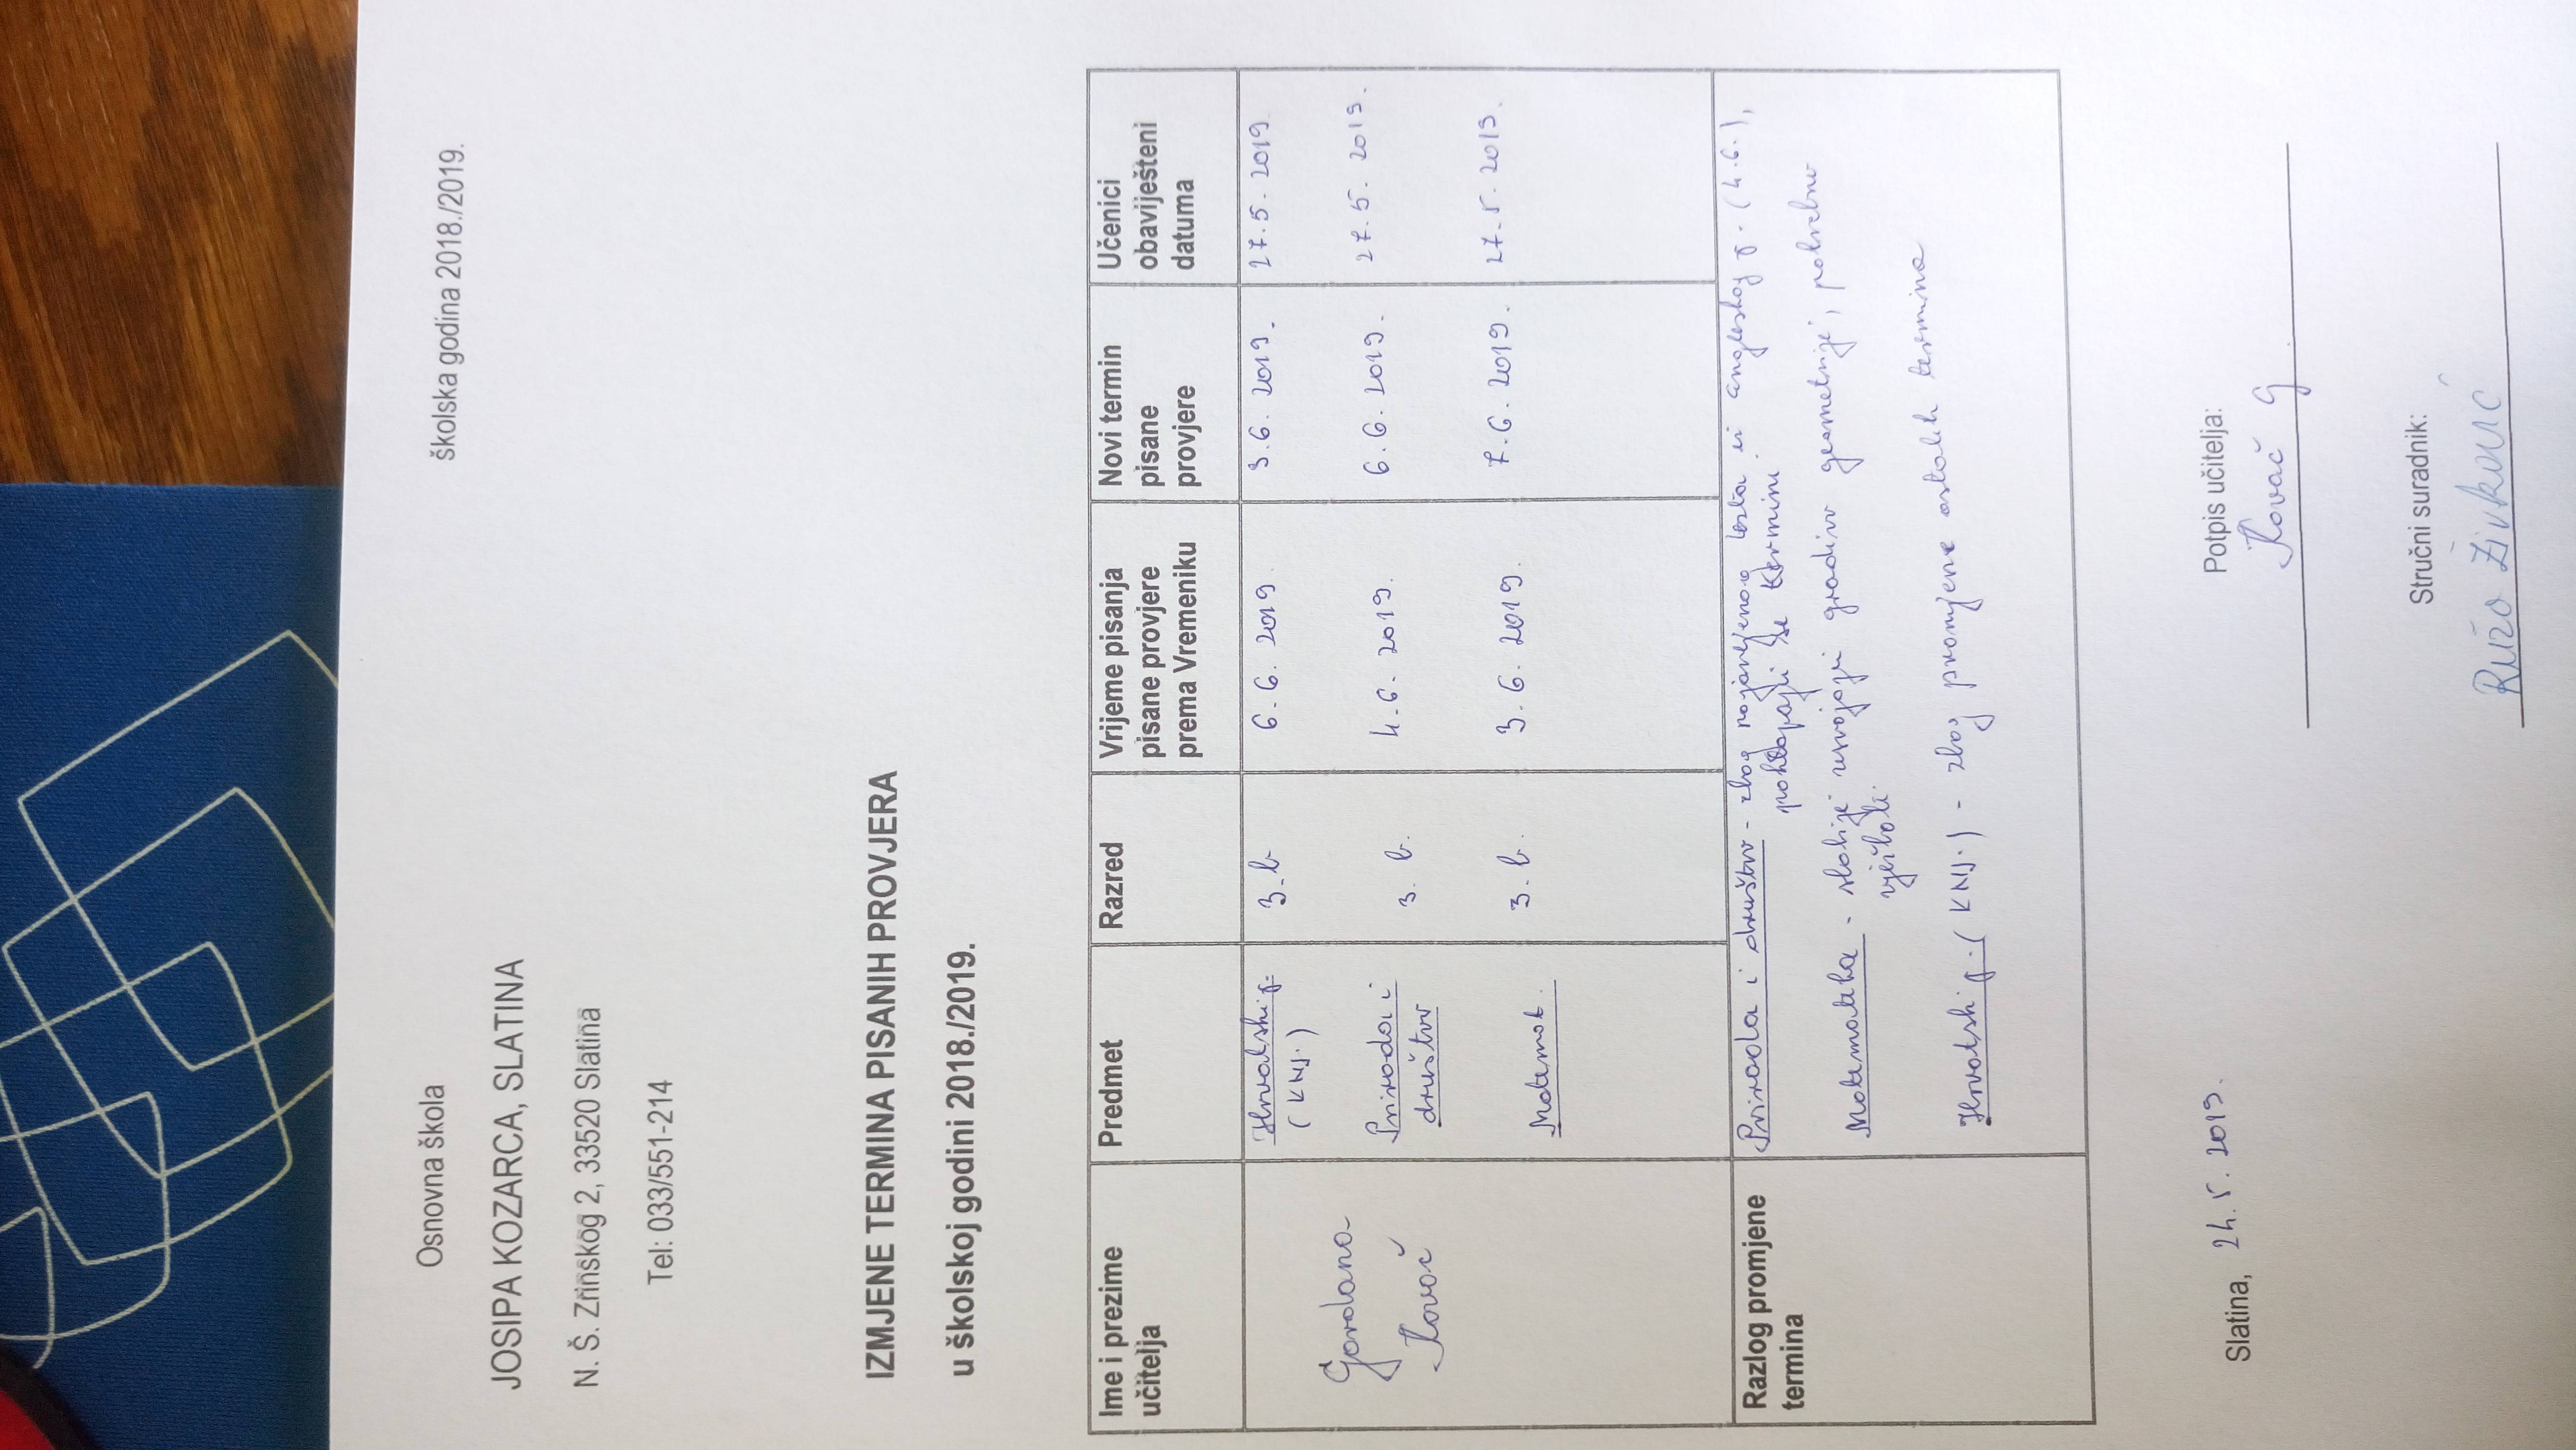 školska godina 2018./2019.
Osnovna škola
JOSIPA KOZARCA, SLATINA
N. Š. Zrinskog 2, 33520 Slatina
Tel: 033/551-214
IZMJENE TERMINA PISANIH PROVJERA
u školskoj godini 2018./2019.
Ime i prezime
učitelja
Predmet
Razred
Vrijeme pisanja
pisane provjere
prema Vremeniku
Novi termin
pisane
provjere
Učenici
obaviješteni
datuma
Gordana
Kovač
Hrvatski j.
(KNJ.)
3. b
6. 6. 2019.
3. 6. 2019.
27. 5. 2019.
Priroda i
društvo
3. b.
4. 6. 2019.
6. 6. 2019.
27. 5. 2019.
Matemat.
3. b.
3. 6. 2019.
7. 6. 2019.
27. 5. 2019.
Razlog promjene
termina
Priroda i društvo - zbog testa iz engleskog j. (4.6.),
se termini
Matematika - slabije usvojeno gradivo geometrije, potrebno
vježbati.
Hrvatski j. (KNJ.) - zbog promjene ostalih termina
Slatina, 24. 5. 2019.
Potpis učitelja:
Kovač G
Stručni suradnik:
Ruža Živković